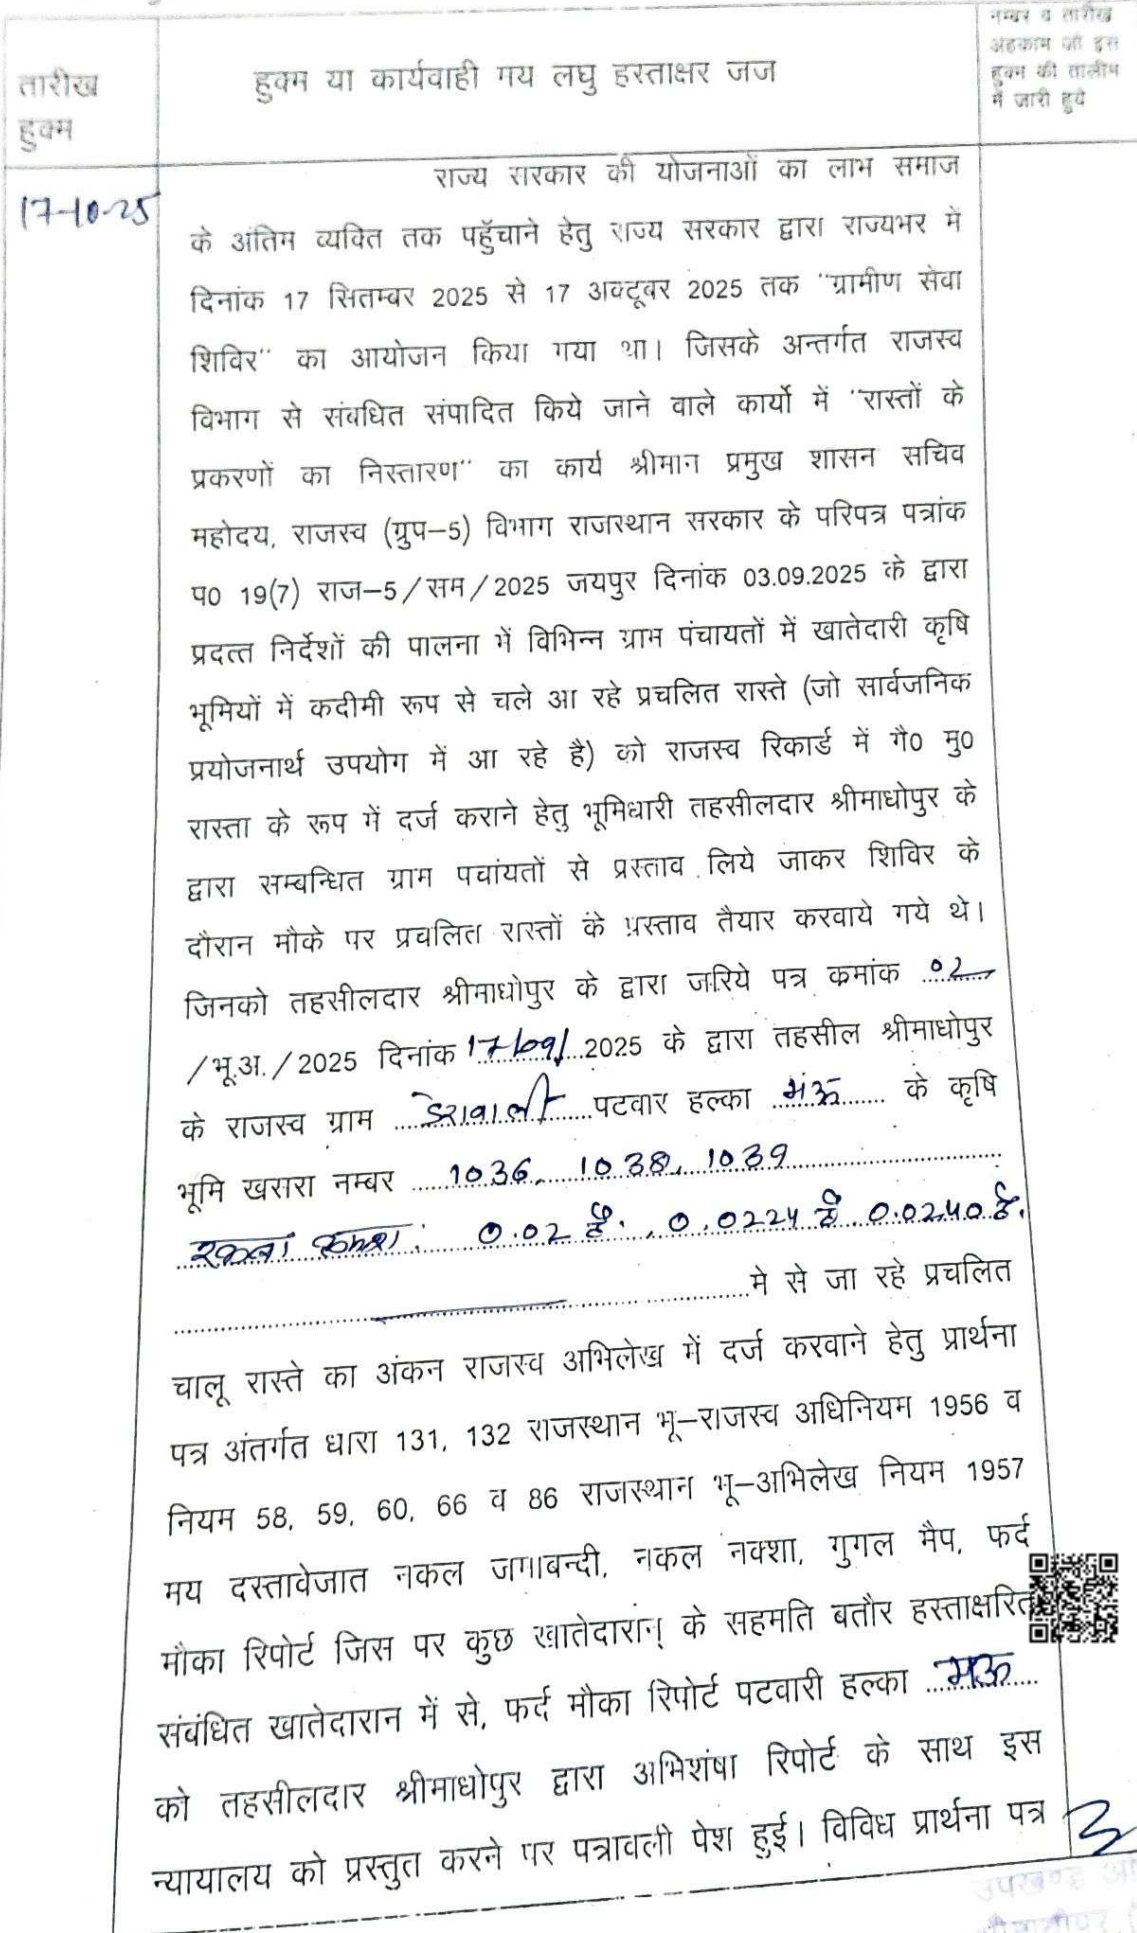 तारीख
हुक्म
हुक्म या कार्यवाही मय लघु हस्ताक्षर जज
नम्बर व तारीख
अहकाम जो इस
हुक्म की तालीम
में जारी हुये
17-10-25
राज्य सरकार की योजनाओं का लाभ समाज
के अंतिम व्यक्ति तक पहुँचाने हेतु राज्य सरकार द्वारा राज्यभर में
दिनांक 17 सितम्बर 2025 से 17 अक्टूबर 2025 तक "ग्रामीण सेवा
शिविर" का आयोजन किया गया था। जिसके अन्तर्गत राजस्व
विभाग से संबधित संपादित किये जाने वाले कार्यो में "रास्तों के
प्रकरणों का निस्तारण" का कार्य श्रीमान प्रमुख शासन सचिव
महोदय, राजस्व (ग्रुप–5) विभाग राजस्थान सरकार के परिपत्र पत्रांक
प0 19(7) राज–5/सम/2025 जयपुर दिनांक 03.09.2025 के द्वारा
प्रदत्त निर्देशों की पालना में विभिन्न ग्राम पंचायतों में खातेदारी कृषि
भूमियों में कदीमी रूप से चले आ रहे प्रचलित रास्ते (जो सार्वजनिक
प्रयोजनार्थ उपयोग में आ रहे है) को राजस्व रिकार्ड में गै0 मु0
रास्ता के रूप में दर्ज कराने हेतु भूमिधारी तहसीलदार श्रीमाधोपुर के
द्वारा सम्बन्धित ग्राम पचांयतों से प्रस्ताव लिये जाकर शिविर के
दौरान मौके पर प्रचलित रास्तों के प्रस्ताव तैयार करवाये गये थे।
जिनको तहसीलदार श्रीमाधोपुर के द्वारा जरिये पत्र क्रमांक 02
/भू.अ./2025 दिनांक 17/09/2025 के द्वारा तहसील श्रीमाधोपुर
के राजस्व ग्राम डेरावाली पटवार हल्का मंऊ के कृषि
भूमि खसरा नम्बर 1036, 1038, 1039
रकबा क्रमश: 0.02 है., 0.0224 है 0.0240 है.
मे से जा रहे प्रचलित
चालू रास्ते का अंकन राजस्व अभिलेख में दर्ज करवाने हेतु प्रार्थना
पत्र अंतर्गत धारा 131, 132 राजस्थान भू–राजस्व अधिनियम 1956 व
नियम 58, 59, 60, 66 व 86 राजस्थान भू–अभिलेख नियम 1957
मय दस्तावेजात नकल जमाबन्दी, नकल नक्शा, गुगल मैप, फर्द
मौका रिपोर्ट जिस पर कुछ खातेदारान् के सहमति बतौर हस्ताक्षरित
संबंधित खातेदारान में से, फर्द मौका रिपोर्ट पटवारी हल्का मऊ
को तहसीलदार श्रीमाधोपुर द्वारा अभिशंषा रिपोर्ट के साथ इस
न्यायालय को प्रस्तुत करने पर पत्रावली पेश हुई। विविध प्रार्थना पत्र
उपखण्ड